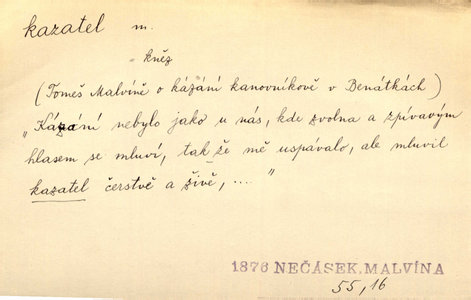 kazatel m.
kněz
(Tomeš Malvíně o kázání kanovníkově v Benátkách)
„Kázání nebylo jako u nás, kde zvolna a zpívavým
hlasem se mluví, tak že mě uspávalo, ale mluvil
kazatel čerstvě a živě, ...."
1876 NEČÁSEK, MALVÍNA
55,16